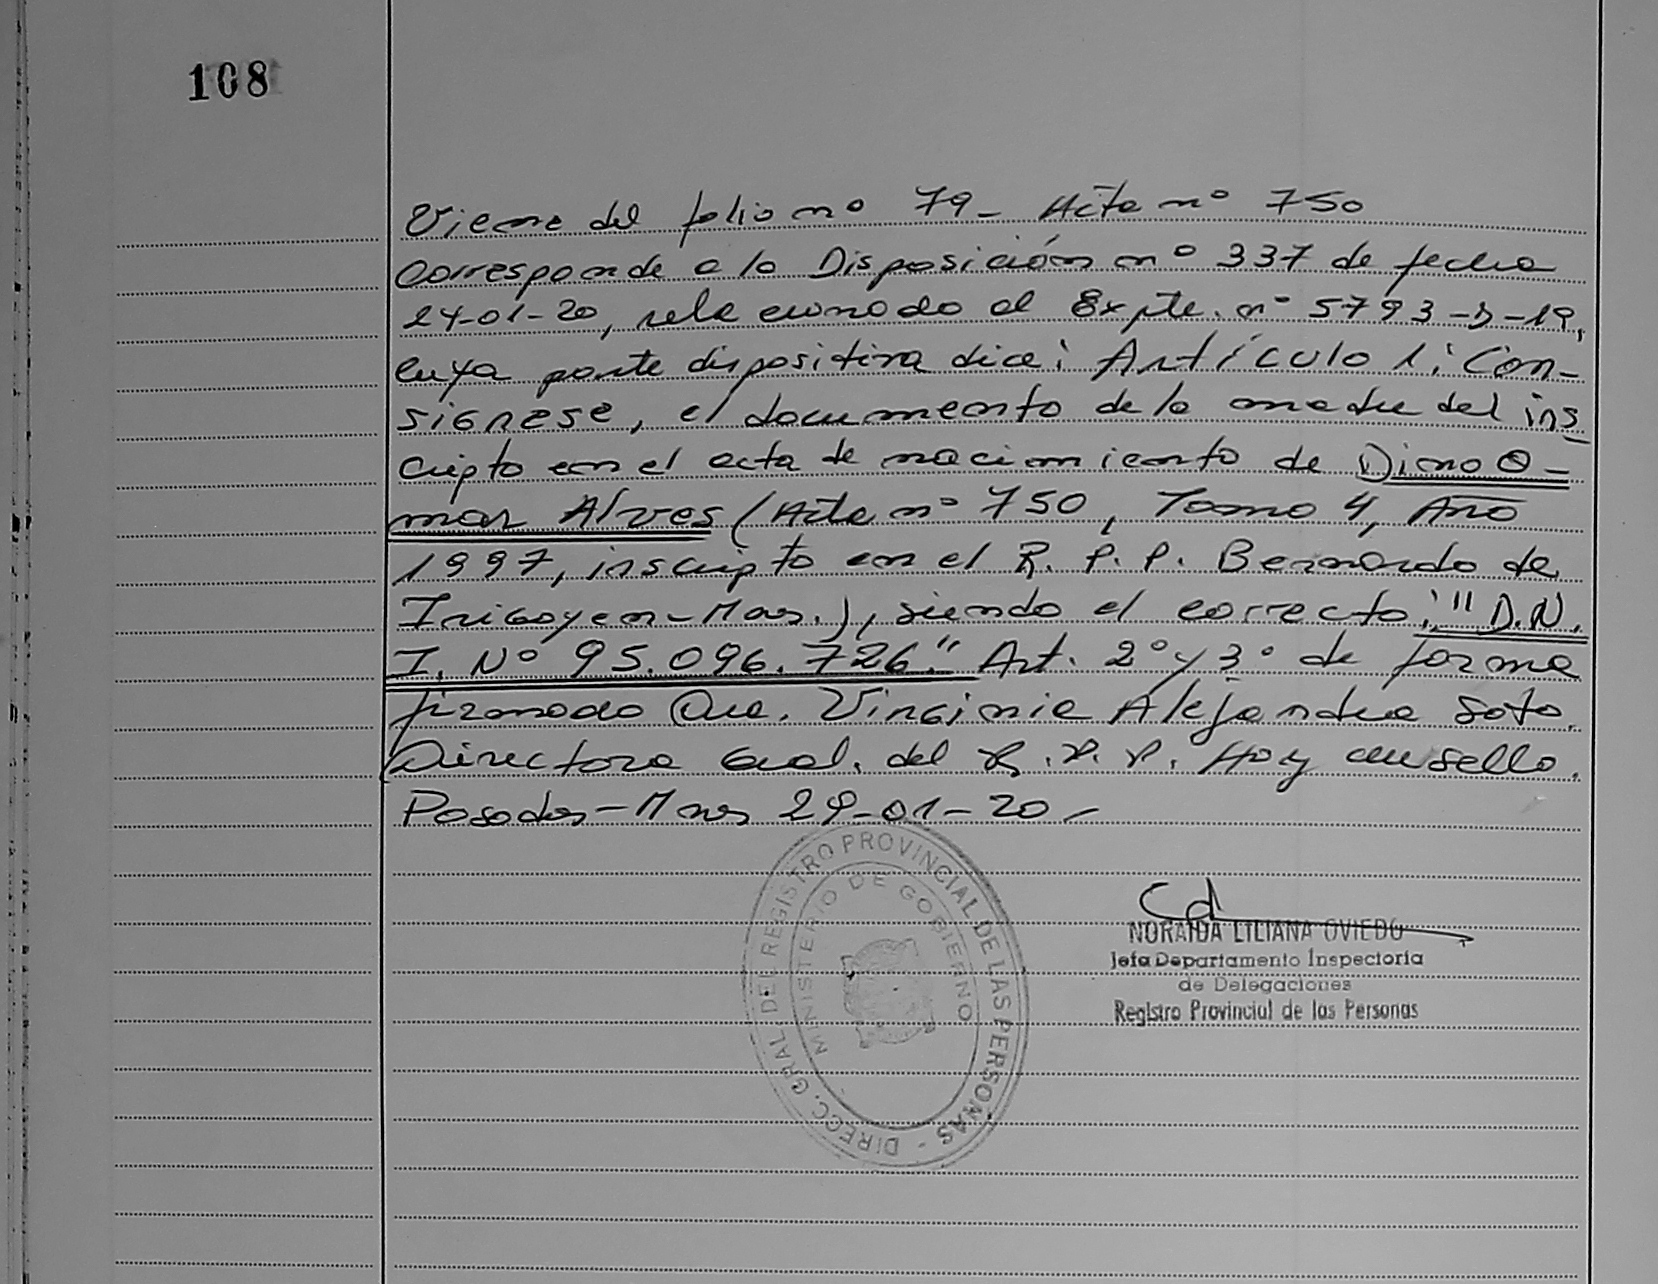 108
Viene del folio nº 79- Acta nº 750
Corresponde a la Disposición nº 337 de fecha
24-01-20, relacionado al Expte. nº 5793-D-19,
cuya parte dispositiva dice: Artículo 1: Con-
signese, el documento de la madre del ins
cripto en el acta de nacimiento de Dino O-
mar Alves (Acta nº 750, Tomo 4, Año
1997, inscripto en el R. P. P. Bernardo de
Irigoyen-Mnes.), siendo el correcto: "D.N.
I. Nº 95.096.726." Art. 2º y 3º de forma
firmado Dra. Virginia Alejandra Soto.
Directora Gral. del R.P.P. Hay un sello.
Posadas-Mnes 29-01-20-
DIRECC. GRAL DEL REGISTRO PROVINCIAL DE LAS PERSONAS -
MINISTERIO DE GOBIERNO
NORAIDA LILIANA OVIEDO
Jefa Departamento Inspectoria
de Delegaciones
Registro Provincial de las Personas